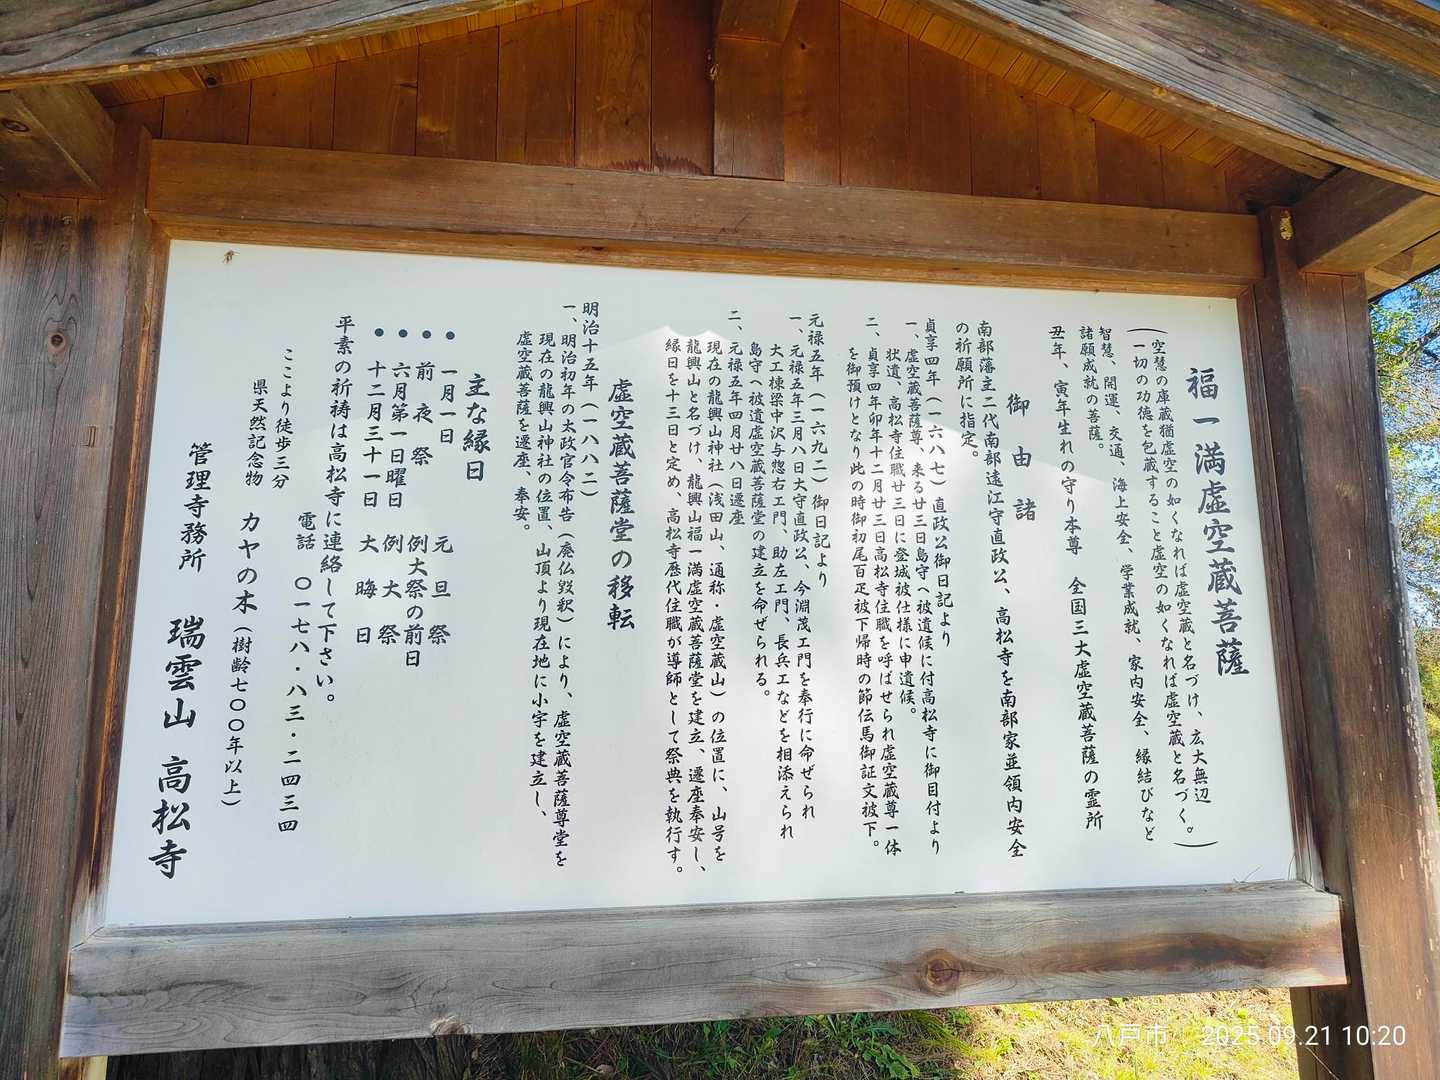 福一満虚空蔵菩薩
(空慧の庫蔵猶虚空の如くなれば虚空蔵と名づけ、広大無辺
一切の功徳を包蔵すること虚空の如くなれば虚空蔵と名づく。)
智慧、開運、交通、海上安全、学業成就、家内安全、縁結びなど
諸願成就の菩薩。
丑年、寅年生れの守り本尊 全国三大虚空蔵菩薩の霊所
御由諸
南部藩主二代南部遠江守直政公、高松寺を南部家並領内安全
の祈願所に指定。
貞享四年(一六八七)直政公御日記より
一、虚空蔵菩薩尊、来る廿三日島守へ被遺候に付高松寺に御目付より
状遺、高松寺住職廿三日に登城被仕様に申遺候。
二、貞享四年卯年十二月廿三日高松寺住職を呼ばせられ虚空蔵尊一体
を御預けとなり此の時御初尾百疋被下帰時の節伝馬御証文被下。
元禄五年(一六九二)御日記より
一、元禄五年三月八日大守直政公、今淵茂エ門を奉行に命ぜられ
大工棟梁中沢与惣右エ門、助左エ門、長兵エなどを相添えられ
島守へ被遺虚空蔵菩薩堂の建立を命ぜられる。
二、元禄五年四月廿八日遷座
現在の龍興山神社(浅田山、通称・虚空蔵山)の位置に、山号を
龍興山と名づけ、龍興山福一満虚空蔵菩薩堂を建立、遷座奉安し、
縁日を十三日と定め、高松寺歴代住職が導師として祭典を執行す。
虚空蔵菩薩堂の移転
明治十五年(一八八二)
一、明治初年の太政官令布告(廃仏毀釈)により、虚空蔵菩薩尊堂を
現在の龍興山神社の位置、山頂より現在地に小宇を建立し、
虚空蔵菩薩を遷座、奉安。
主な縁日
●一月一日 元旦祭
●前夜祭 例大祭の前日
●六月第一日曜日 例大祭
●十二月三十一日 大晦日
平素の祈祷は高松寺に連絡して下さい。
電話 〇一七八・八三・二四三四
ここより徒歩三分
県天然記念物 カヤの木(樹齢七〇〇年以上)
管理寺務所 瑞雲山 高松寺
八戸市 2025.09.21 10:20